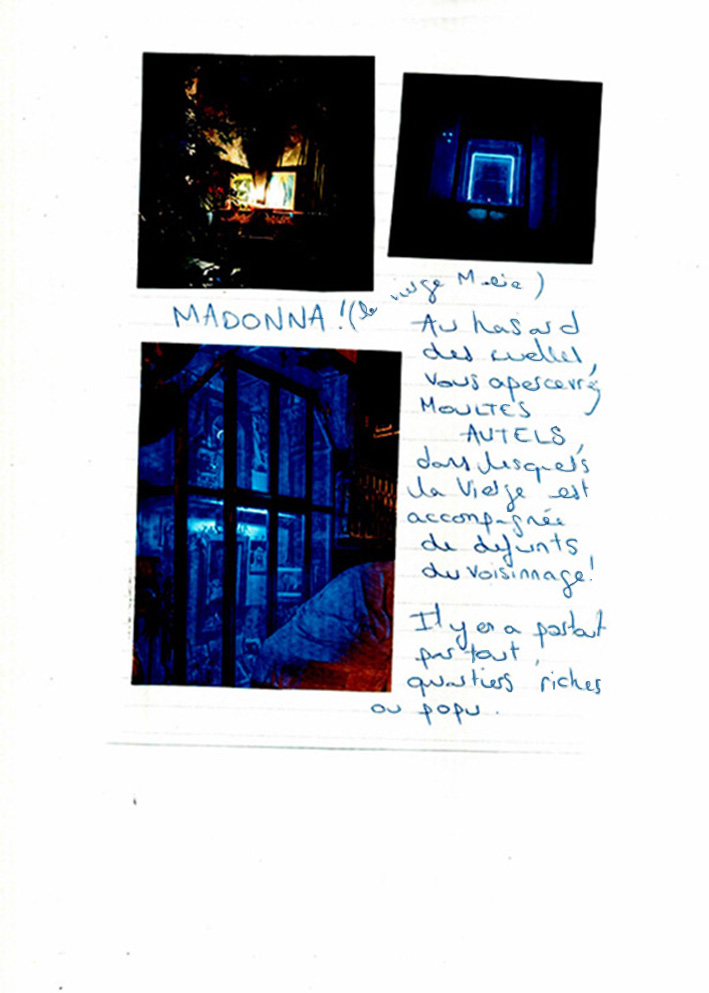 MADONNA ! (la vierge Marie)
Au hasard
des ruelles,
vous apercevrez
MOULTES
AUTELS,
dans lesquels
la Vierge est
accompagnée
de défunts
du voisinnage!
Il y en a partout
partout,
quartiers riches
ou popu.